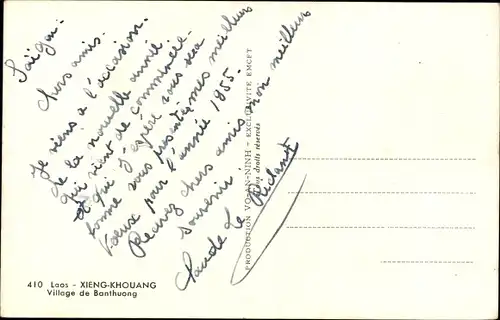 Saïgon.
Chers amis.
Je viens a l'occasion
de la nouvelle année
qui vient de commencée
et qui j'éspér vous sera
bonne vous présentermes meilleurs
voeux pour l'année 1955.
Recevez chers amis mon meilleur
souvenir
Claude Le
PRODUCTION VO-AN-NINH - EXCLUSIVITÉ EMCET
Tous droits réservés
410 Laos - XIENG-KHOUANG
Village de Banthuong